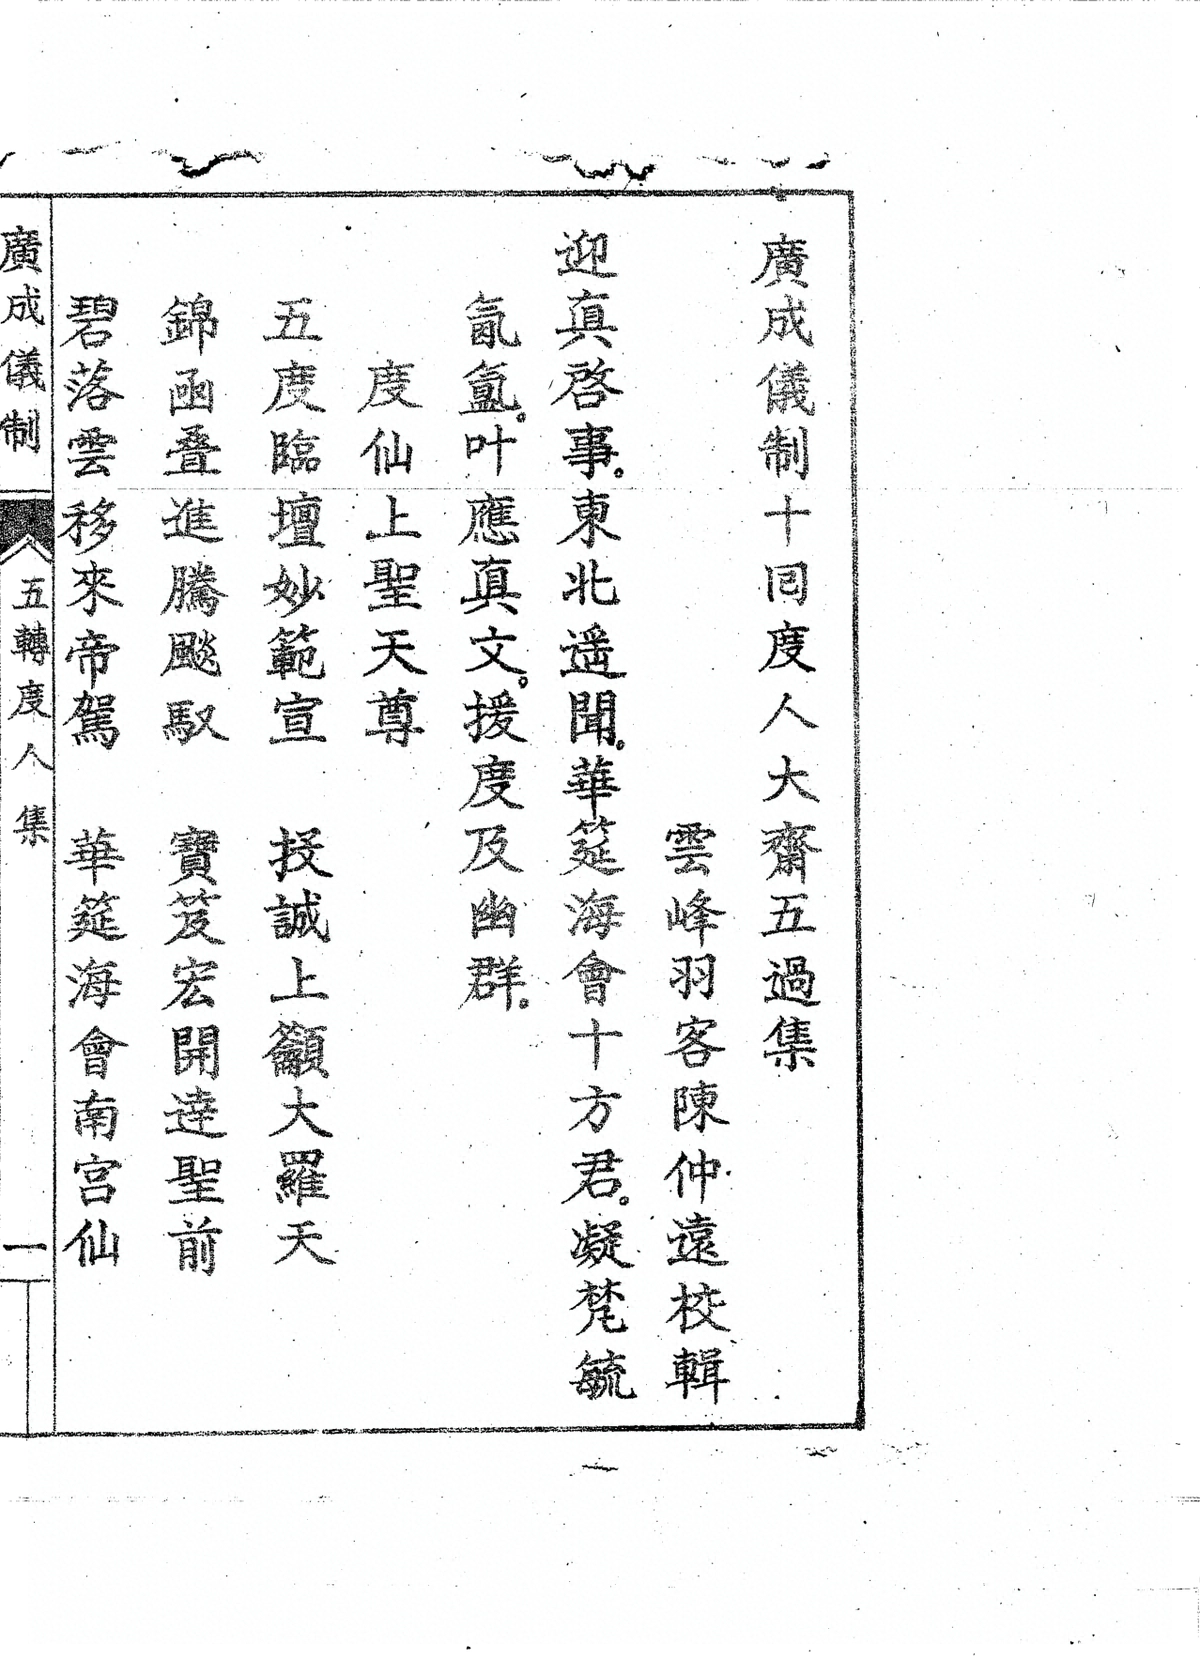 廣成儀制十回度人大齋五過集
雲峰羽客陳仲遠校輯
迎真啓事。東北遥聞。華筵海會十方君。凝梵毓
氤氳。叶應真文。援度及幽群。
度仙上聖天尊
五度臨壇妙範宣　投誠上籲大羅天
錦函叠進騰飈馭　寶笈宏開達聖前
碧落雲移來帝駕　華筵海會南宮仙
廣成儀制　五轉度人集　一